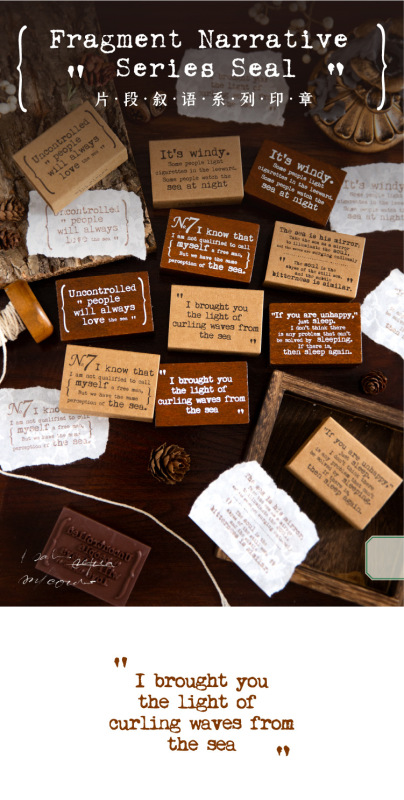 Fragment Narrative
" Series Seal "
片·段·叙·语·系·列·印·章
Uncontrolled
" people
will always
love the sea "
It's windy.
Some people light
cigarettes in the leeward.
Some people watch the
sea at night
It's windy.
Some people light
cigarettes in the leeward.
Some people watch the
sea at night
It's windy.
Uncontrolled
people
will always
love the sea
N7 I know that
I am not qualified to call
myself a free man,
But we have the same
perception of the sea.
The sea is his mirror.
bitterness is similar.
Uncontrolled
" people
will always
love the sea "
" I brought you
the light of
curling waves from
the sea "
"If you are unhappy,"
just sleep.
I don't think there
is any problem that can't
be solved by sleeping.
If there is,
then sleep again.
N7 I know that
I am not qualified to call
myself a free man,
But we have the same
perception of the sea.
" I brought you
the light of
curling waves from
the sea "
N7 I know
I am not qualified to call
myself a free man,
But we have the same
perception of the sea.
"If you are unhappy,"
just sleep.
I don't think there
is any problem that can't
be solved by sleeping.
If there is,
then sleep again.
" I brought you
the light of
curling waves from
the sea "